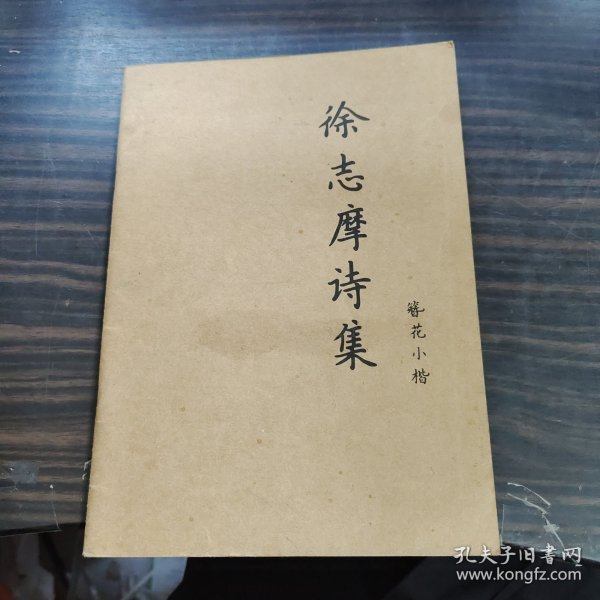 徐志摩诗集
簪花小楷
孔夫子旧书网
www.kongfz.com